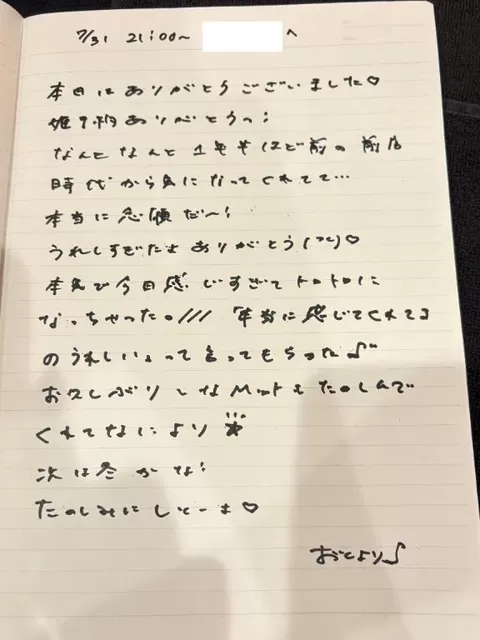 7/31 21:00~ へ
本日はありがとうございました♡
姫予約ありがとうっ!
なんとなんと1年半ほど前の前店
時代から気になってくれてて…
本当に念願だ~!
うれしすぎたよありがとう(つ_⊂)♡
本気で今日感じすぎてトロトロに
なっちゃった。/// 「本当に感じてくれてる
のうれしい」って言ってもらった♪
お久しぶりしなMットもたのしんで
くれてなにより☆
次は冬かな!
たのしみにしとーよ♡
より♪